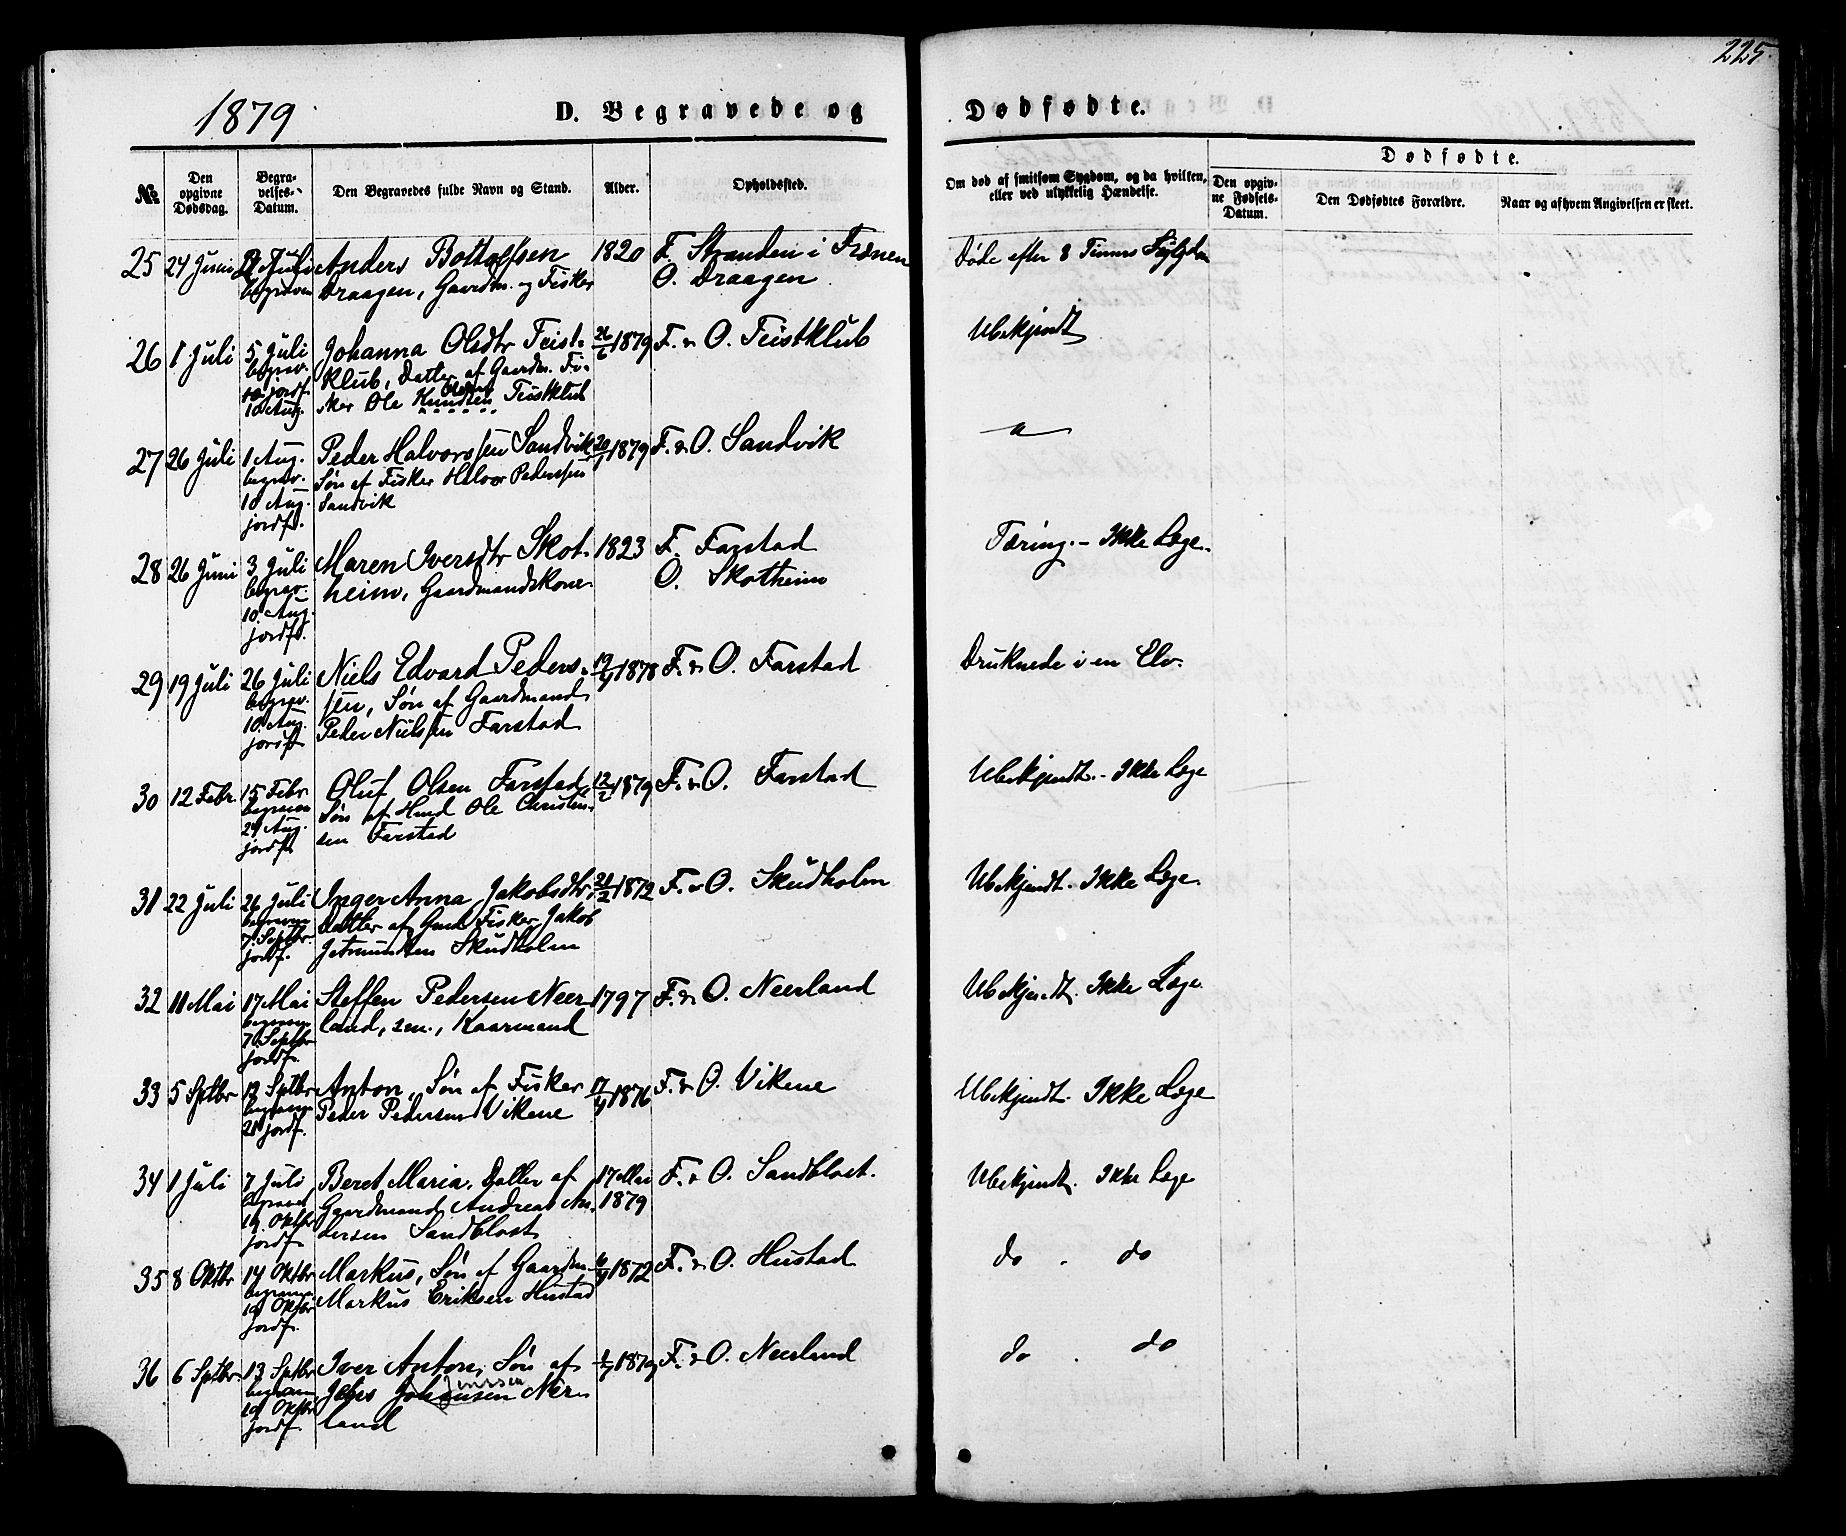 225.
1879.
D. Begravede og Dødfødte.
Dødfødte.
№
Den opgivne Dødsdag.
Begravelses-Datum.
Den Begravedes fulde Navn og Stand.
Alder.
Opholdssted.
Om død af smitsom Sygdom, og da hvilken, eller ved ulykkelig Hændelse.
Den opgivne Fødsels-Datum.
Den Dødfødtes Forældre.
Naar og af hvem Angivelsen er skeet.
25 24 Juni Juli Anders Bottolfsen 1820 F. Stranden i Frænen Døde efter 8 Timers
begraven Draagen, Gaardm. og Fisker O. Draagen
26 1 Juli 5 Juli Johanna Olsdtr Teist- 26/6 1879 F. & O. Teistklub Ubekjendt
begrav. klub, Datter af Gaardm. Fi-
jordf. 10 Aug. sker Ole Knudsen Teistklub
27 26 Juli 1 Aug. Peder Halvorssen Sandvik 1879 F. & O. Sandvik "
begrav. Søn af Fisker Halvor Pederssen
10 Aug. jordf. Sandvik
28 26 Juni 3 Juli Maren Iversdtr Skot- 1823 F. Farstad Tæring. - Ikke Læge.
begrav. heim, Gaardmandskone O. Skotheim
10. Aug. jordf.
29 19 Juli 26 Juli Niels Edvard Peders- 1878 F. & O. Farstad Druknede i en Elv.
begrav. sen, Søn af Gaardmand
10. Aug. jordf. Peder Nielssen Farstad
30 12 Febr. 15 Febr Oluf Olsen Farstad 12/2 1879 F. & O. Farstad Ubekjendt. - Ikke Læge
begraven Søn af Hmd Ole Christen-
24 Aug. jordf. sen Farstad
31 22 Juli 26 Juli Inger Anna Jakobsdtr, 1872 F. & O. Skudholm Ubekjendt. Ikke Læge.
begraven Datter af Gmd Fisker Jakob
7. Septbr. jordf. Jetmundsen Skudholm
32 11 Mai 17 Mai Steffen Pedersen Neer- 1797 F. & O. Neerland Ubekjendt. Ikke Læge.
begraven land, sen., Kaarmand
7. Septbr jordf.
33 5 Sptbr 13 Sptbr Anton, Søn af Fisker 1876 F. & O. Vikene Ubekjendt. Ikke Læge
begraven Peder Pedersen Vikene
21 jordf.
34 1 Juli 7 Juli Beret Maria, Datter af 17 Mai F. & O. Sandblost. Ubekjendt. Ikke Læge
begravet Gaardmand Andreas An- 1879
19. Oktbr jordf. dersen Sandblost
35 8 Oktbr 14 Oktbr Markus, Søn af Gaardm. 1872 F. & O. Hustad do . do
begraven Markus Eriksen Hustad
19 Oktbr jordf.
36 6 Sptbr. 13 Sptbr Iver Anton, Søn af 1879 F. & O. Neerland do . do
begraven Jenssen
19 Oktbr Johansen Neer-
jordf. land